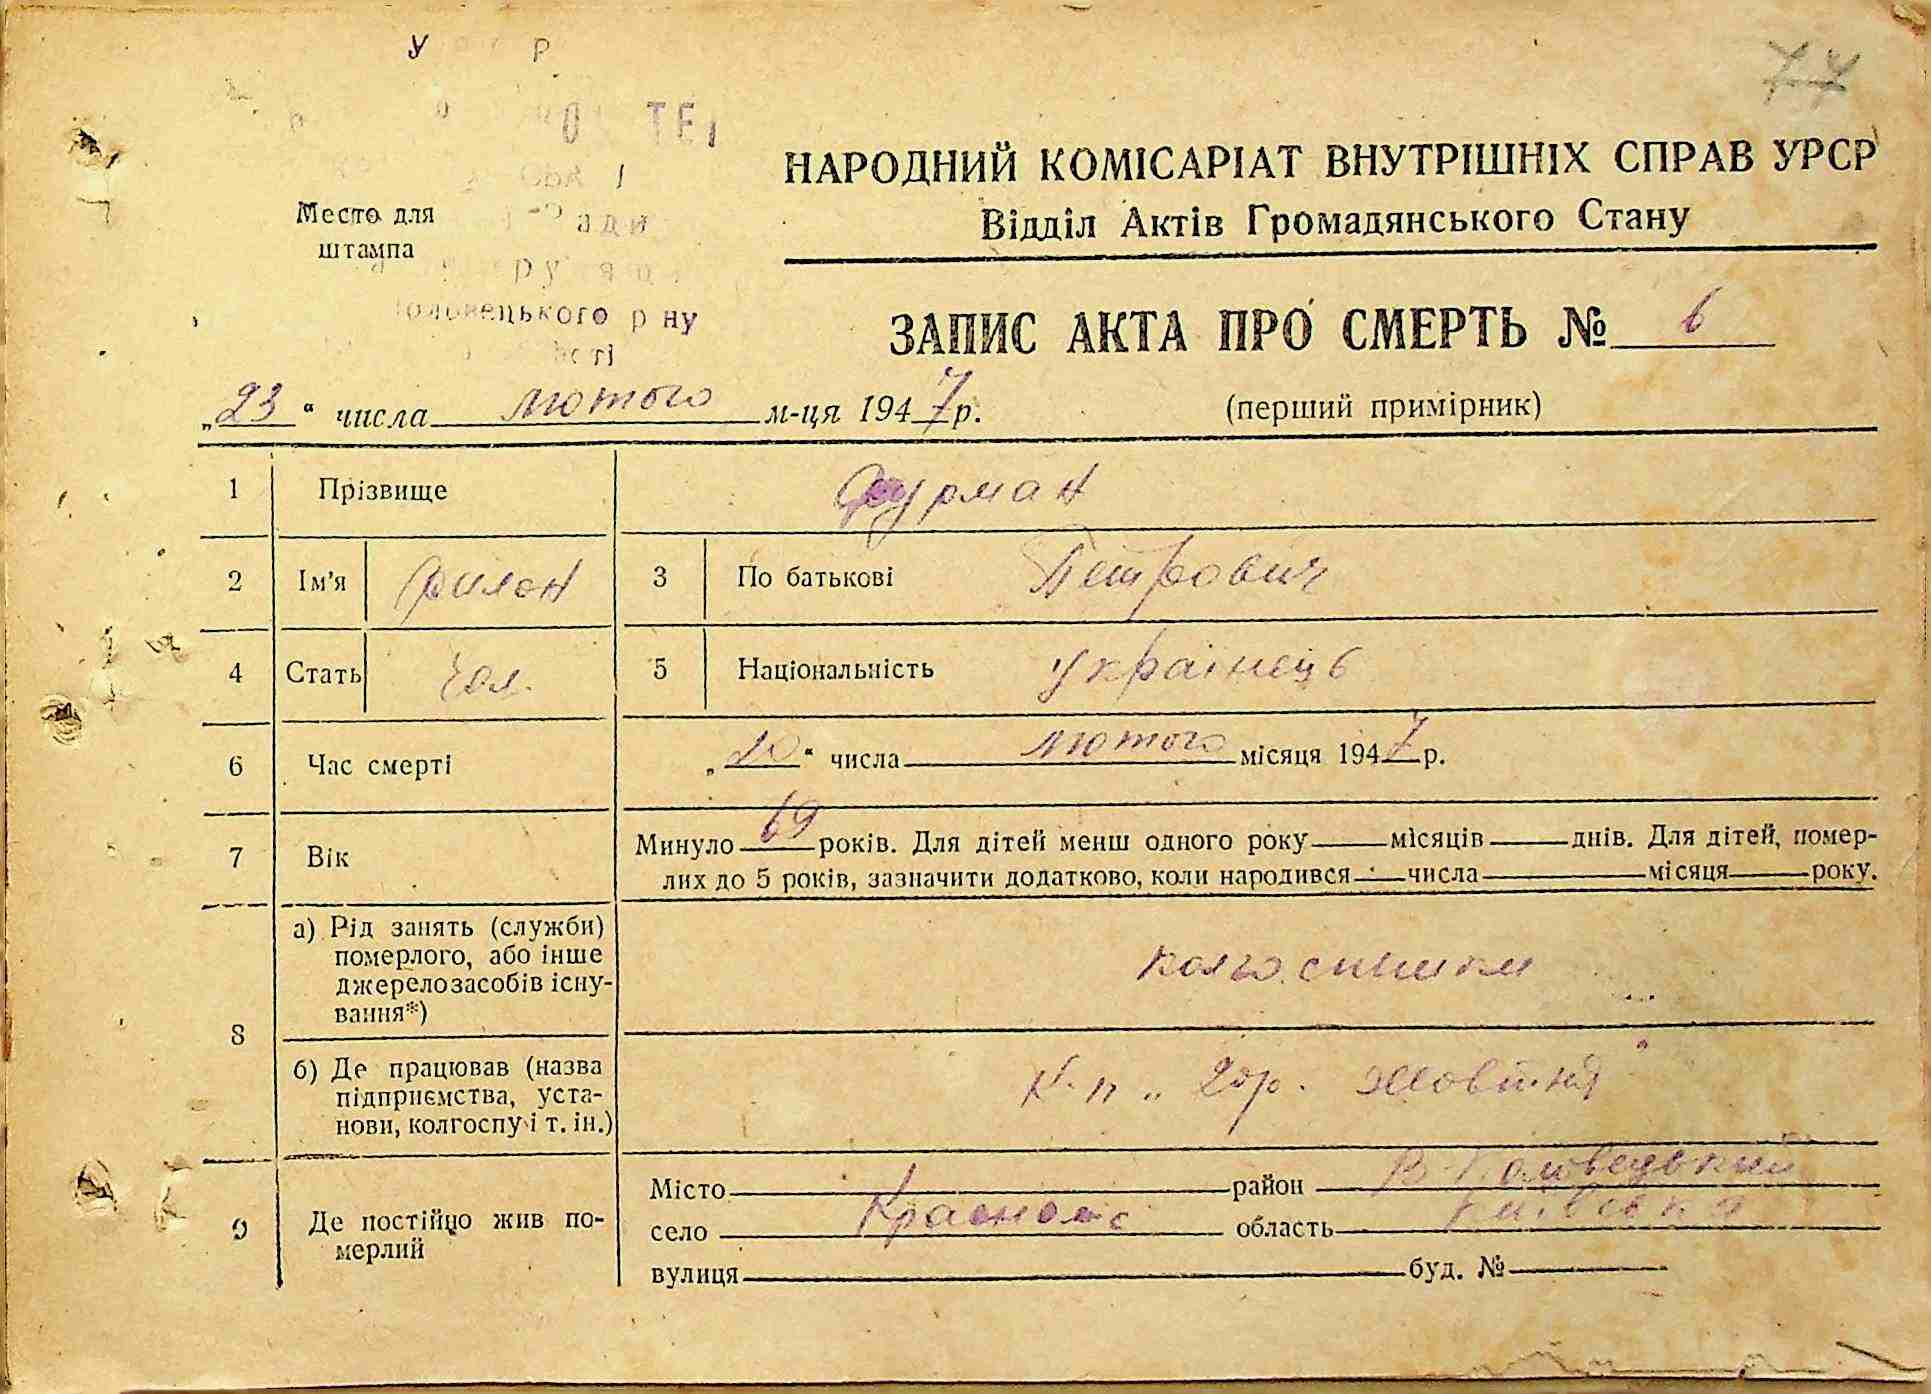 77
НАРОДНИЙ КОМІСАРІАТ ВНУТРІШНІХ СПРАВ УРСР
Відділ Актів Громадянського Стану
Место для
штампа
ЗАПИС АКТА ПРО СМЕРТЬ № 6
„23“ числа лютого м-ця 1947 р.
(перший примірник)
1 Прізвище Фурман
2 Ім'я Филон 3 По батькові Петрович
4 Стать чол. 5 Національність українець
6 Час смерті „20“ числа лютого місяця 1947 р.
7 Вік Минуло 69 років. Для дітей менш одного року місяців днів. Для дітей, помер-
лих до 5 років, зазначити додатково, коли народився числа місяця року.
8 а) Рід занять (служби)
померлого, або інше
джерело засобів існу-
вання*)
колгоспником
б) Де працював (назва
підприємства, уста-
нови, колгоспу і т. ін.)
К-п „20 р. Жовтня"
9 Де постійно жив по-
мерлий
Місто район В-Половецький
село Краснолєс область Київська
вулиця буд. №